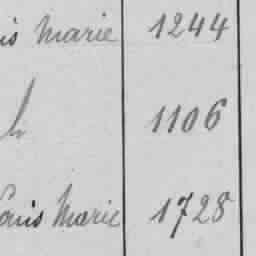 is Marie 1244
h 1106
Louis Marie 1728